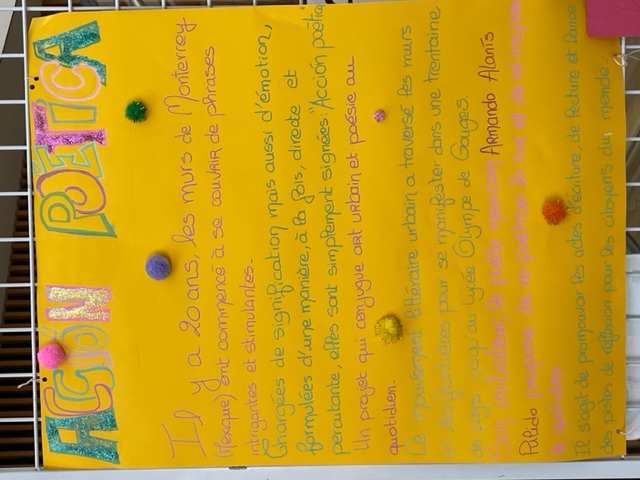 ACCIÓN POÉTICA
Il y a 20 ans, les murs de Monterrey
(Mexique) ont commencé à se couvrir de phrases
intrigantes et stimulantes.
Chargées de signification mais aussi d'émotion,
formulées d'une manière, à la fois, directe et
percutante, elles sont simplement signées "Acción poética
Un projet qui conjugue art urbain et poésie au
quotidien.
Ce mouvement littéraire urbain a traversé les murs
et les frontières pour se manifester dans une trentaine
de pays jusqu'au lycée Olympe de Gouges.
Son initiateur le poète mexicain Armando Alanís
Pulido propose de re poétiser la rue et de
le quotidien
Il s'agit de promouvoir les actes d'écriture, de lecture et
des pistes de réflexion pour les citoyens du monde